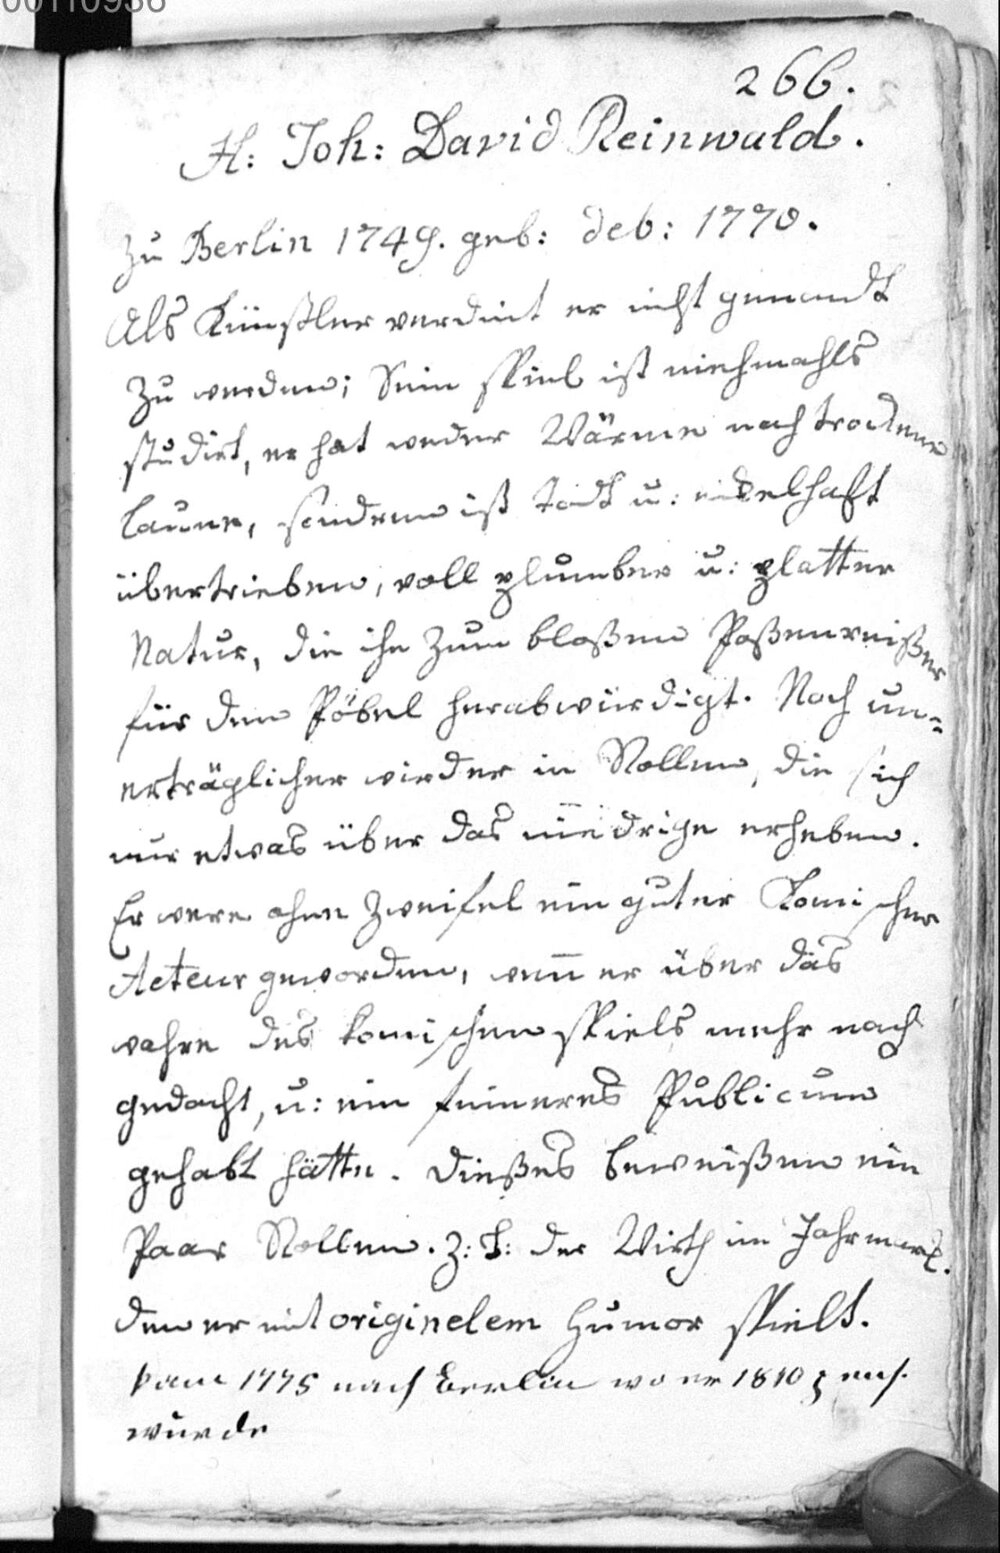 00110936
266.
H: Joh: David Reinwald.
Zu Berlin 1749. geb: deb: 1770.
Als Künstler verdint er nicht genandt
zu werden; Sein spiel ist niehmahls
studirt, er hat weder Wärme noch trockene
Laune, sondern ist todt u: eckelhaft
übertrieben, voll plumber u: platter
Natur, die ihn zum bloßen Poßenreißer
für den Pöbel herabwürdigt. Noch un=
erträglicher wird er in Rollen, die sich
nur etwas über das niedrige erheben.
Er were ohne Zweifel ein guter Komischer
Acteur geworden, wenn er über das
wahre des komischen spiels mehr nach
gedacht, u: ein feineres Publicum
gehabt hätte. Dießes beweißen ein
Paar Rollen. Z: B: der Wirth im Jahrmark.
den er mit originelem Humor spielt.
kam 1775 nach Berlin wo er 1810 pens.
wurde